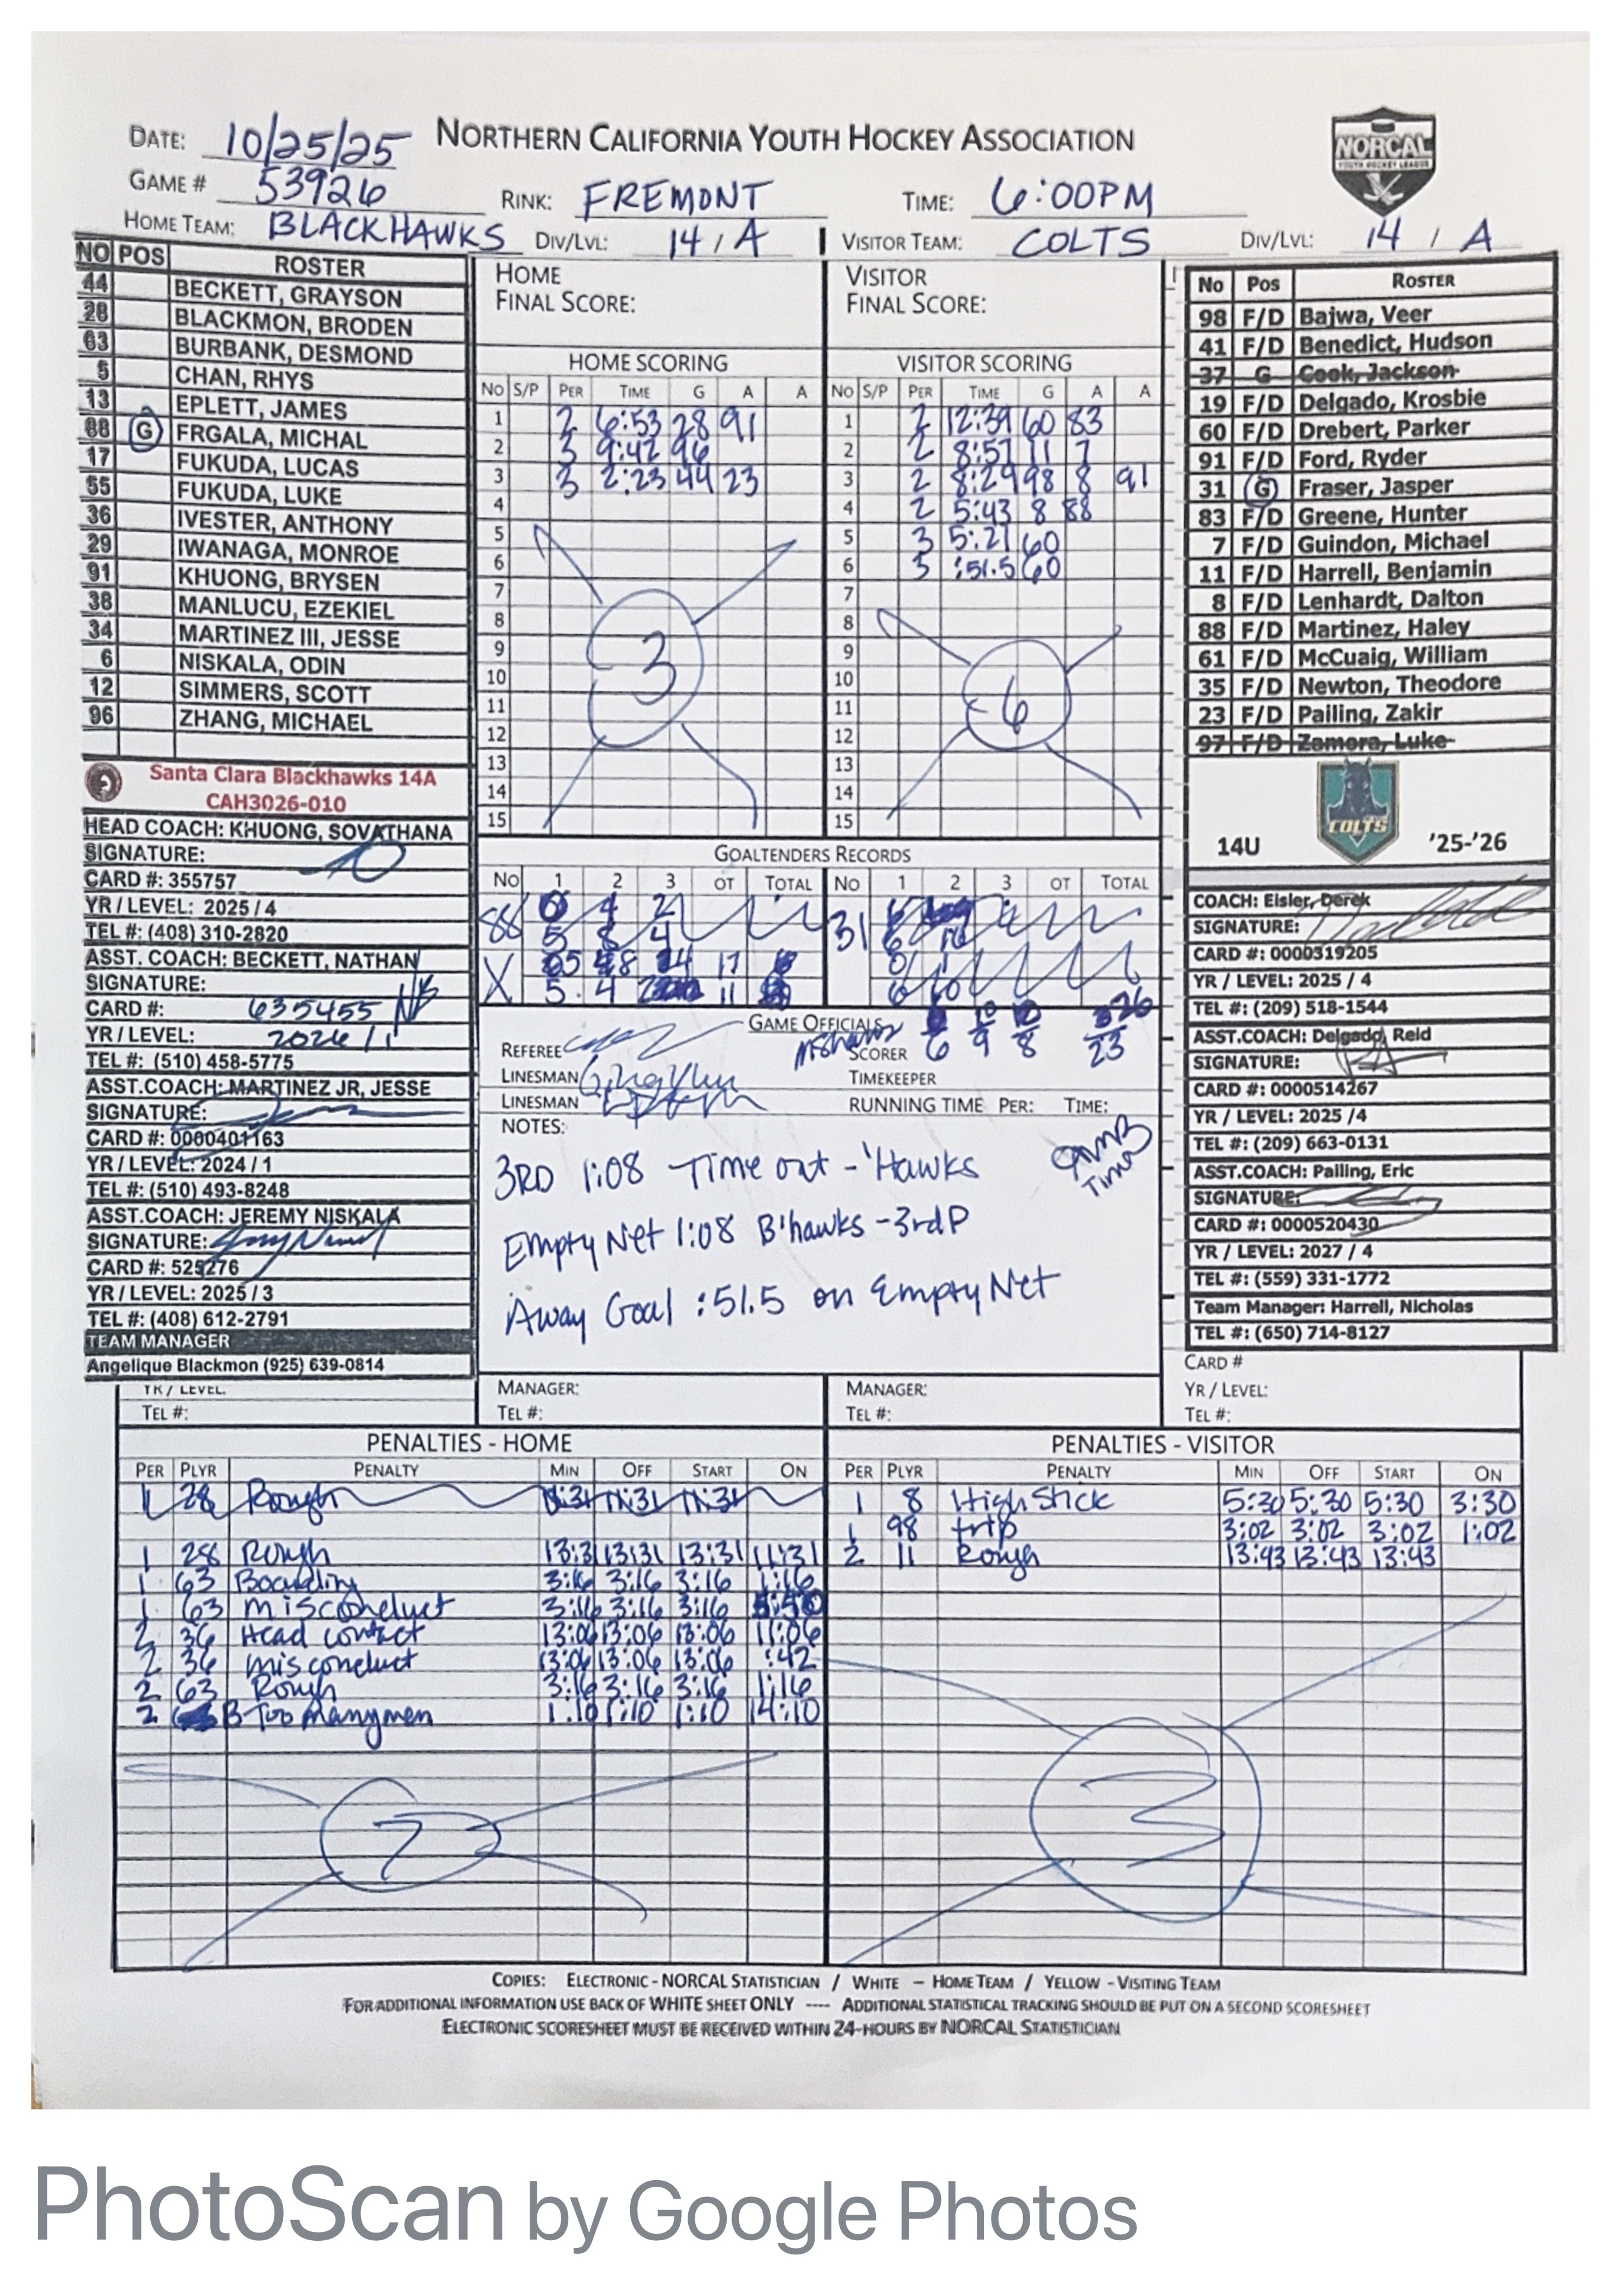 DATE: 10/25/25 NORTHERN CALIFORNIA YOUTH HOCKEY ASSOCIATION
NORCAL
YOUTH HOCKEY LEAGUE
GAME # 53926 RINK: FREMONT TIME: 6:00PM
HOME TEAM: BLACKHAWKS DIV/LVL: 14 / A VISITOR TEAM: COLTS DIV/LVL: 14 / A
NO POS ROSTER
44 BECKETT, GRAYSON
28 BLACKMON, BRODEN
63 BURBANK, DESMOND
5 CHAN, RHYS
13 EPLETT, JAMES
88 G FRGALA, MICHAL
17 FUKUDA, LUCAS
55 FUKUDA, LUKE
36 IVESTER, ANTHONY
29 IWANAGA, MONROE
91 KHUONG, BRYSEN
38 MANLUCU, EZEKIEL
34 MARTINEZ III, JESSE
6 NISKALA, ODIN
12 SIMMERS, SCOTT
96 ZHANG, MICHAEL
Santa Clara Blackhawks 14A
CAH3026-010
HEAD COACH: KHUONG, SOVATHANA
SIGNATURE:
CARD #: 355757
YR / LEVEL: 2025 / 4
TEL #: (408) 310-2820
ASST. COACH: BECKETT, NATHAN
SIGNATURE:
CARD #: 635455 NB
YR / LEVEL: 2026 / 1
TEL #: (510) 458-5775
ASST.COACH: MARTINEZ JR, JESSE
SIGNATURE:
CARD #: 0000401163
YR / LEVEL: 2024 / 1
TEL #: (510) 493-8248
ASST.COACH: JEREMY NISKALA
SIGNATURE:
CARD #: 525276
YR / LEVEL: 2025 / 3
TEL #: (408) 612-2791
TEAM MANAGER
Angelique Blackmon (925) 639-0814
YR / LEVEL:
TEL #:
HOME
FINAL SCORE:
HOME SCORING
NO S/P PER TIME G A A
1 2 6:53 28 91
2 3 9:42 96
3 3 2:23 44 23
4
5
6
7
8
9
10
11
12
13
14
15
3
VISITOR
FINAL SCORE:
VISITOR SCORING
NO S/P PER TIME G A A
1 2 12:39 60 83
2 2 8:57 11 7
3 2 8:29 98 8 91
4 2 5:43 8 88
5 3 5:21 60
6 3 :51.5 60
7
8
9
10
11
12
13
14
15
6
GOALTENDERS RECORDS
NO 1 2 3 OT TOTAL NO 1 2 3 OT TOTAL
88 4 2
5 8 4
31
X 5 4 11
GAME OFFICIALS
REFEREE SCORER 6 9 8 23
LINESMAN TIMEKEEPER
LINESMAN RUNNING TIME PER: TIME:
NOTES:
3RD 1:08 Time out - 'Hawks
Empty Net 1:08 B'hawks - 3rd P
Away Goal :51.5 on Empty Net
Timer
MANAGER:
TEL #:
MANAGER:
TEL #:
No Pos ROSTER
98 F/D Bajwa, Veer
41 F/D Benedict, Hudson
37 G Cook, Jackson
19 F/D Delgado, Krosbie
60 F/D Drebert, Parker
91 F/D Ford, Ryder
31 G Fraser, Jasper
83 F/D Greene, Hunter
7 F/D Guindon, Michael
11 F/D Harrell, Benjamin
8 F/D Lenhardt, Dalton
88 F/D Martinez, Haley
61 F/D McCuaig, William
35 F/D Newton, Theodore
23 F/D Pailing, Zakir
97 F/D Zamora, Luke
14U COLTS '25-'26
COACH: Eisler, Derek
SIGNATURE:
CARD #: 0000319205
YR / LEVEL: 2025 / 4
TEL #: (209) 518-1544
ASST.COACH: Delgado, Reid
SIGNATURE:
CARD #: 0000514267
YR / LEVEL: 2025 /4
TEL #: (209) 663-0131
ASST.COACH: Pailing, Eric
SIGNATURE:
CARD #: 0000520430
YR / LEVEL: 2027 / 4
TEL #: (559) 331-1772
Team Manager: Harrell, Nicholas
TEL #: (650) 714-8127
CARD #
YR / LEVEL:
TEL #:
PENALTIES - HOME
PER PLYR PENALTY MIN OFF START ON
1 28 Rough 11:31 11:31
1 28 Rough 13:31 13:31 13:31 11:31
1 63 Boarding 3:16 3:16 3:16 1:16
1 63 misconduct 3:16 3:16 3:16
2 36 Head contact 13:06 13:06 13:06 11:06
2 36 misconduct 13:06 13:06 13:06 :42
2 63 Rough 3:16 3:16 3:16 1:16
2 B Too many men 1:10 1:10 1:10 14:10
7
PENALTIES - VISITOR
PER PLYR PENALTY MIN OFF START ON
1 8 High Stick 5:30 5:30 5:30 3:30
1 98 trip 3:02 3:02 3:02 1:02
2 11 Rough 13:43 13:43 13:43
3
COPIES: ELECTRONIC - NORCAL STATISTICIAN / WHITE – HOME TEAM / YELLOW - VISITING TEAM
FOR ADDITIONAL INFORMATION USE BACK OF WHITE SHEET ONLY ---- ADDITIONAL STATISTICAL TRACKING SHOULD BE PUT ON A SECOND SCORESHEET
ELECTRONIC SCORESHEET MUST BE RECEIVED WITHIN 24-HOURS BY NORCAL STATISTICIAN
PhotoScan by Google Photos